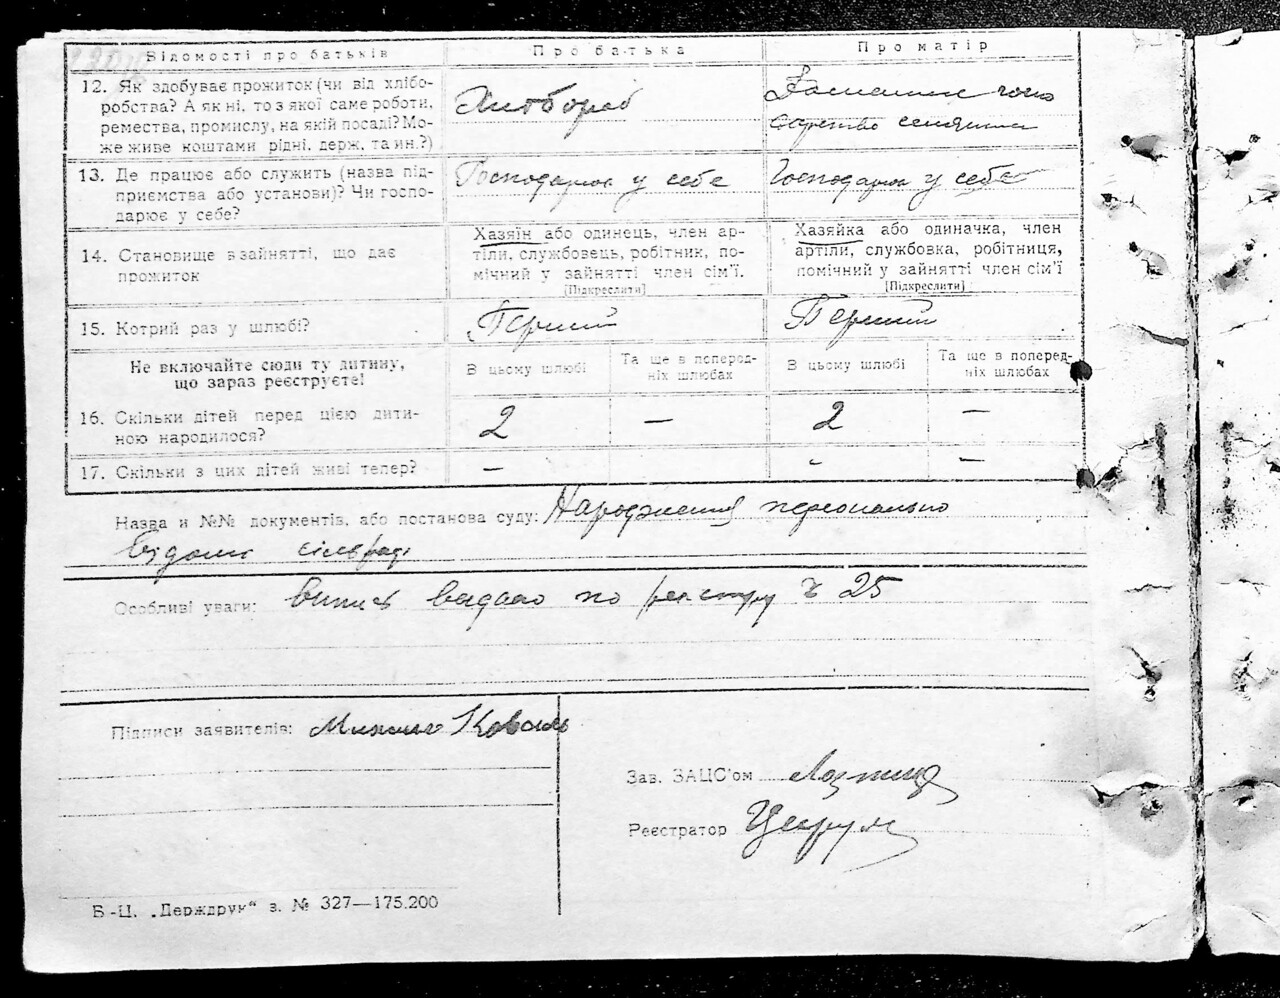 Відомості про батьків
Про батька
Про матір
12. Як здобуває прожиток (чи від хлібо-
робства? А як ні, то з якої саме роботи,
ремества, промислу, на якій посаді? Мо-
же живе коштами рідні, держ. та ин.?)
Хлібороб
Домашнє госпо
дарство селянина
13. Де працює або служить (назва під-
приємства або установи)? Чи госпо-
дарює у себе?
Господарює у себе
Господарює у себе
14. Становище в зайнятті, що дає
прожиток
Хазяїн або одинець, член ар-
тіли, службовець, робітник, по-
мічний у зайнятті член сім'ї.
[Підкреслити]
Хазяйка або одиначка, член
артіли, службовка, робітниця,
помічний у зайнятті член сім'ї
[Підкреслити]
15. Котрий раз у шлюбі?
Перший
Перший
Не включайте сюди ту дитину,
що зараз реєструєте!
В цьому шлюбі
Та ще в поперед-
ніх шлюбах
В цьому шлюбі
Та ще в поперед-
ніх шлюбах
16. Скільки дітей перед цією дити-
ною народилося?
2
—
2
—
17. Скільки з цих дітей живі тепер?
—
-
—
Назва и №№ документів, або постанова суду: Народження персонально
відоме сільраді
Особливі уваги: Випись видано по реєстру № 25
Підписи заявителів: Михайло Коваль
Зав. ЗАЦС'ом
Реєстратор
Б-Ц. „Держдрук“ з. № 327—175.200